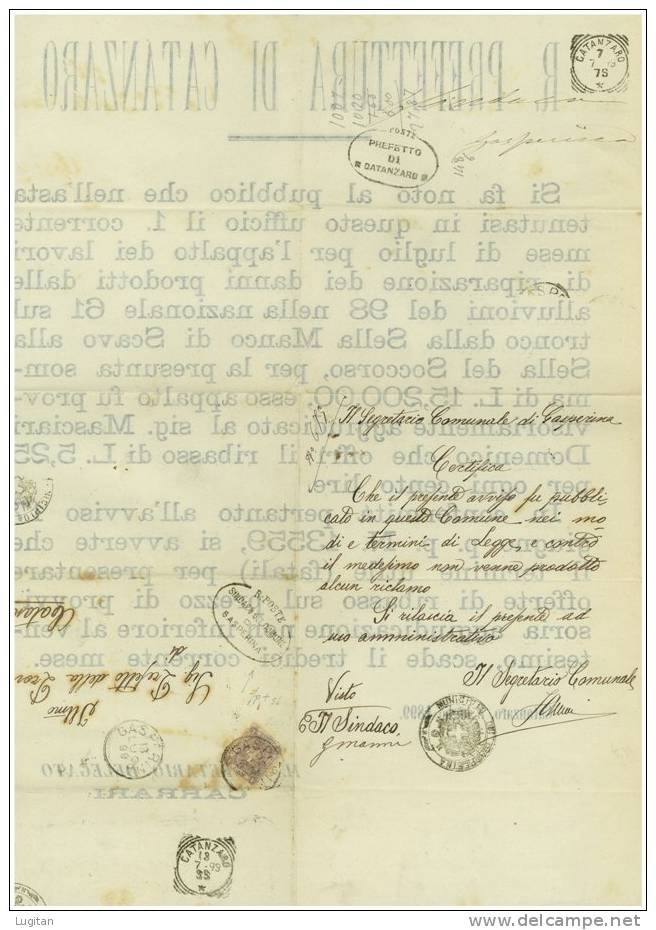 R. PREFETTURA DI CATANZARO
CATANZARO
7
7 - 99
7S
1027
1020
POSTE
PREFETTO
DI
CATANZARO
Si fa noto al pubblico che nell'asta
tenutasi in questo ufficio il 1. corrente
mese di luglio per l'appalto dei lavori
di riparazione dei danni prodotti dalle
alluvioni del 98 nella nazionale 61 sul
tronco dalla Sella Manco di Scavo alla
Sella del Soccorso, per la presunta som-
ma di L. 15,200,00, esso appalto fu prov-
visoriamente aggiudicato al sig. Masciari
Domenico che offrì il ribasso di L. 5,25
per ogni cento lire.
pertanto all'avviso
13559, si avverte che
il termine utile (fatali) per presentare
offerte di ribasso sul prezzo di provvi-
soria aggiudicazione non inferiore al ven-
tesimo, scade il tredici corrente mese.
1899.
IL SEGRETARIO DELEGATO
Il Segretario Comunale di Gasperina
Certifica
Che il presente avviso fu pubbli
cato in questo Comune nei mo
di e termini di Legge, e contro
il medesimo non venne prodotto
alcun riclamo
Si rilascia il presente ad
uso amministrativo
Il Segretario Comunale
Visto
Il Sindaco
MUNICIPIO DI GASPERINA
R. POSTE
SINDACO
GASPERINA
Illmo
Sig. Prefetto della Prov
di
Catan
GASPERINA
CATANZARO
13
7 - 99
3S
Lugitan
delcampe.net